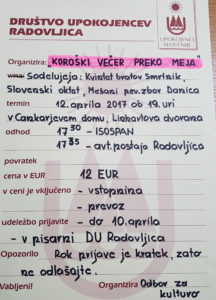 DRUŠTVO UPOKOJENCEV
RADOVLJICA
UPOKOJENCI
SLOVENIJE
Organizira: KOROŠKI VEČER PREKO MEJA"
Sodelujejo: Kvintet bratov Smrtnik,
Slovenski oktet, Mešani pev. zbor Danica
termin 12. aprila 2017 ob 19. uri
v Cankarjevem domu, Linhartova dvorana
odhod 17 30 - ISOSPAN
17 35 - avt. postaja Radovljica
povratek
cena v EUR 12 EUR
v ceni je vključeno - vstopnina
- prevoz
udeležbo prijavite - do 10. aprila
- v pisarni DU Radovljica
Opozorilo Rok prijave je kratek, zato
ne odlašajte.
Vabljeni! Organizira Odbor za
kulturo